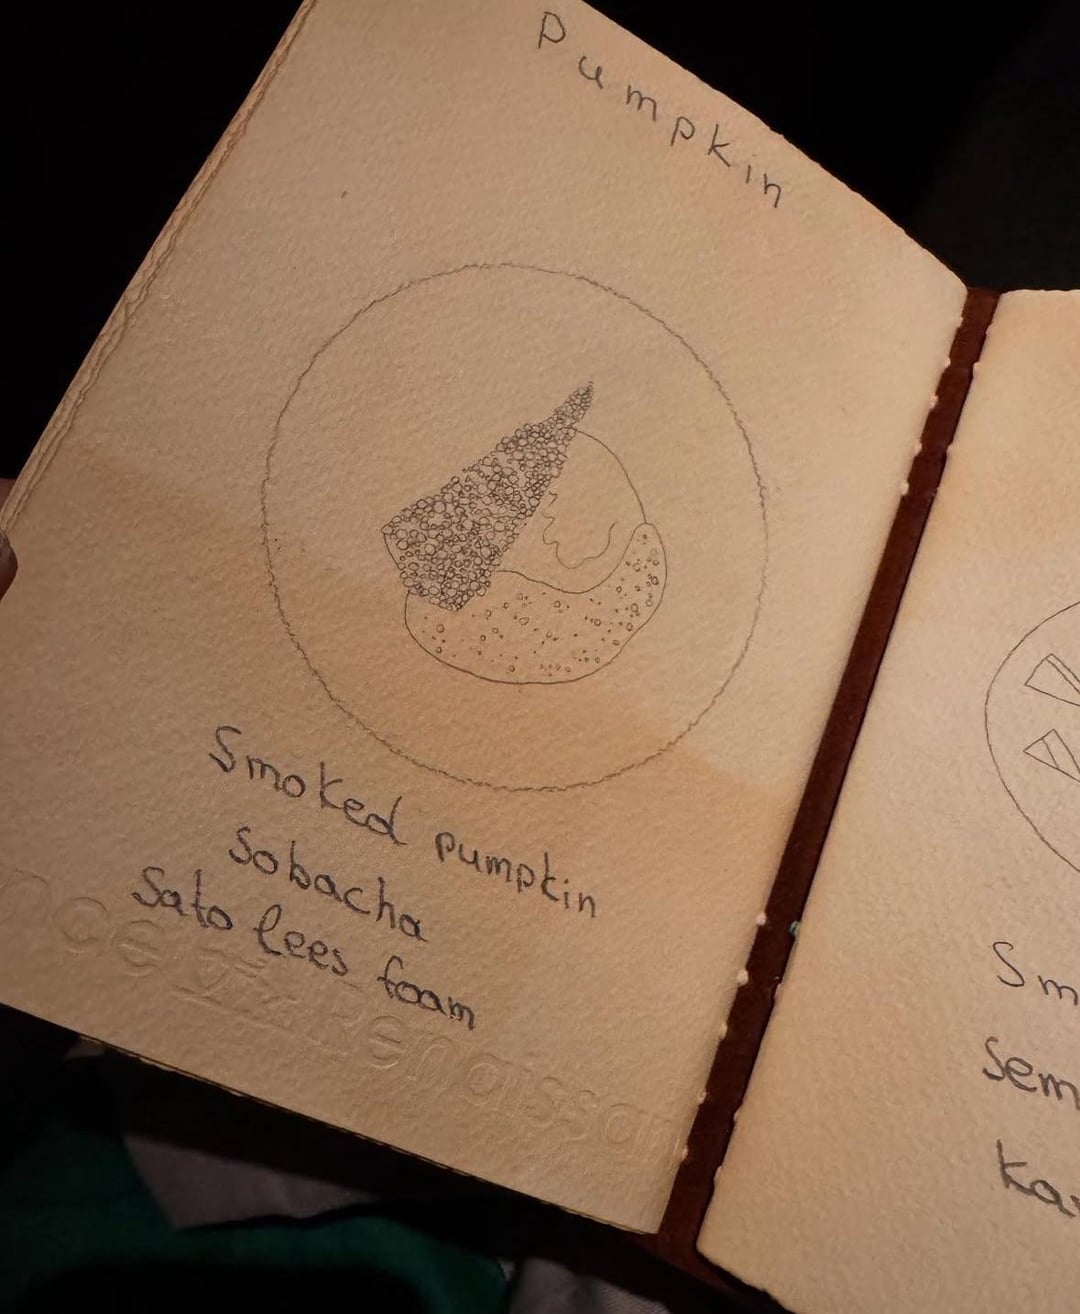 Pumpkin
Smoked pumpkin
Sobacha
Sato lees foam
Renaissan
Sm
Sem
ka